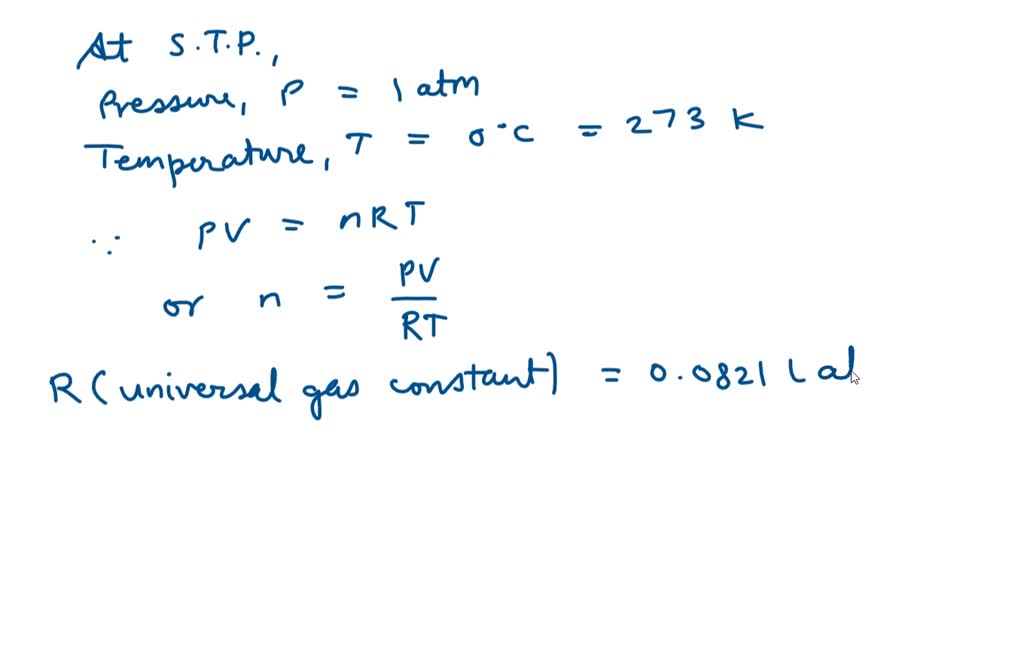 At S.T.P.,
Pressure, P = 1 atm
Temperature, T = 0°C = 273 K
∵ PV = nRT
or n = PV/RT
R (universal gas constant) = 0.0821 L at